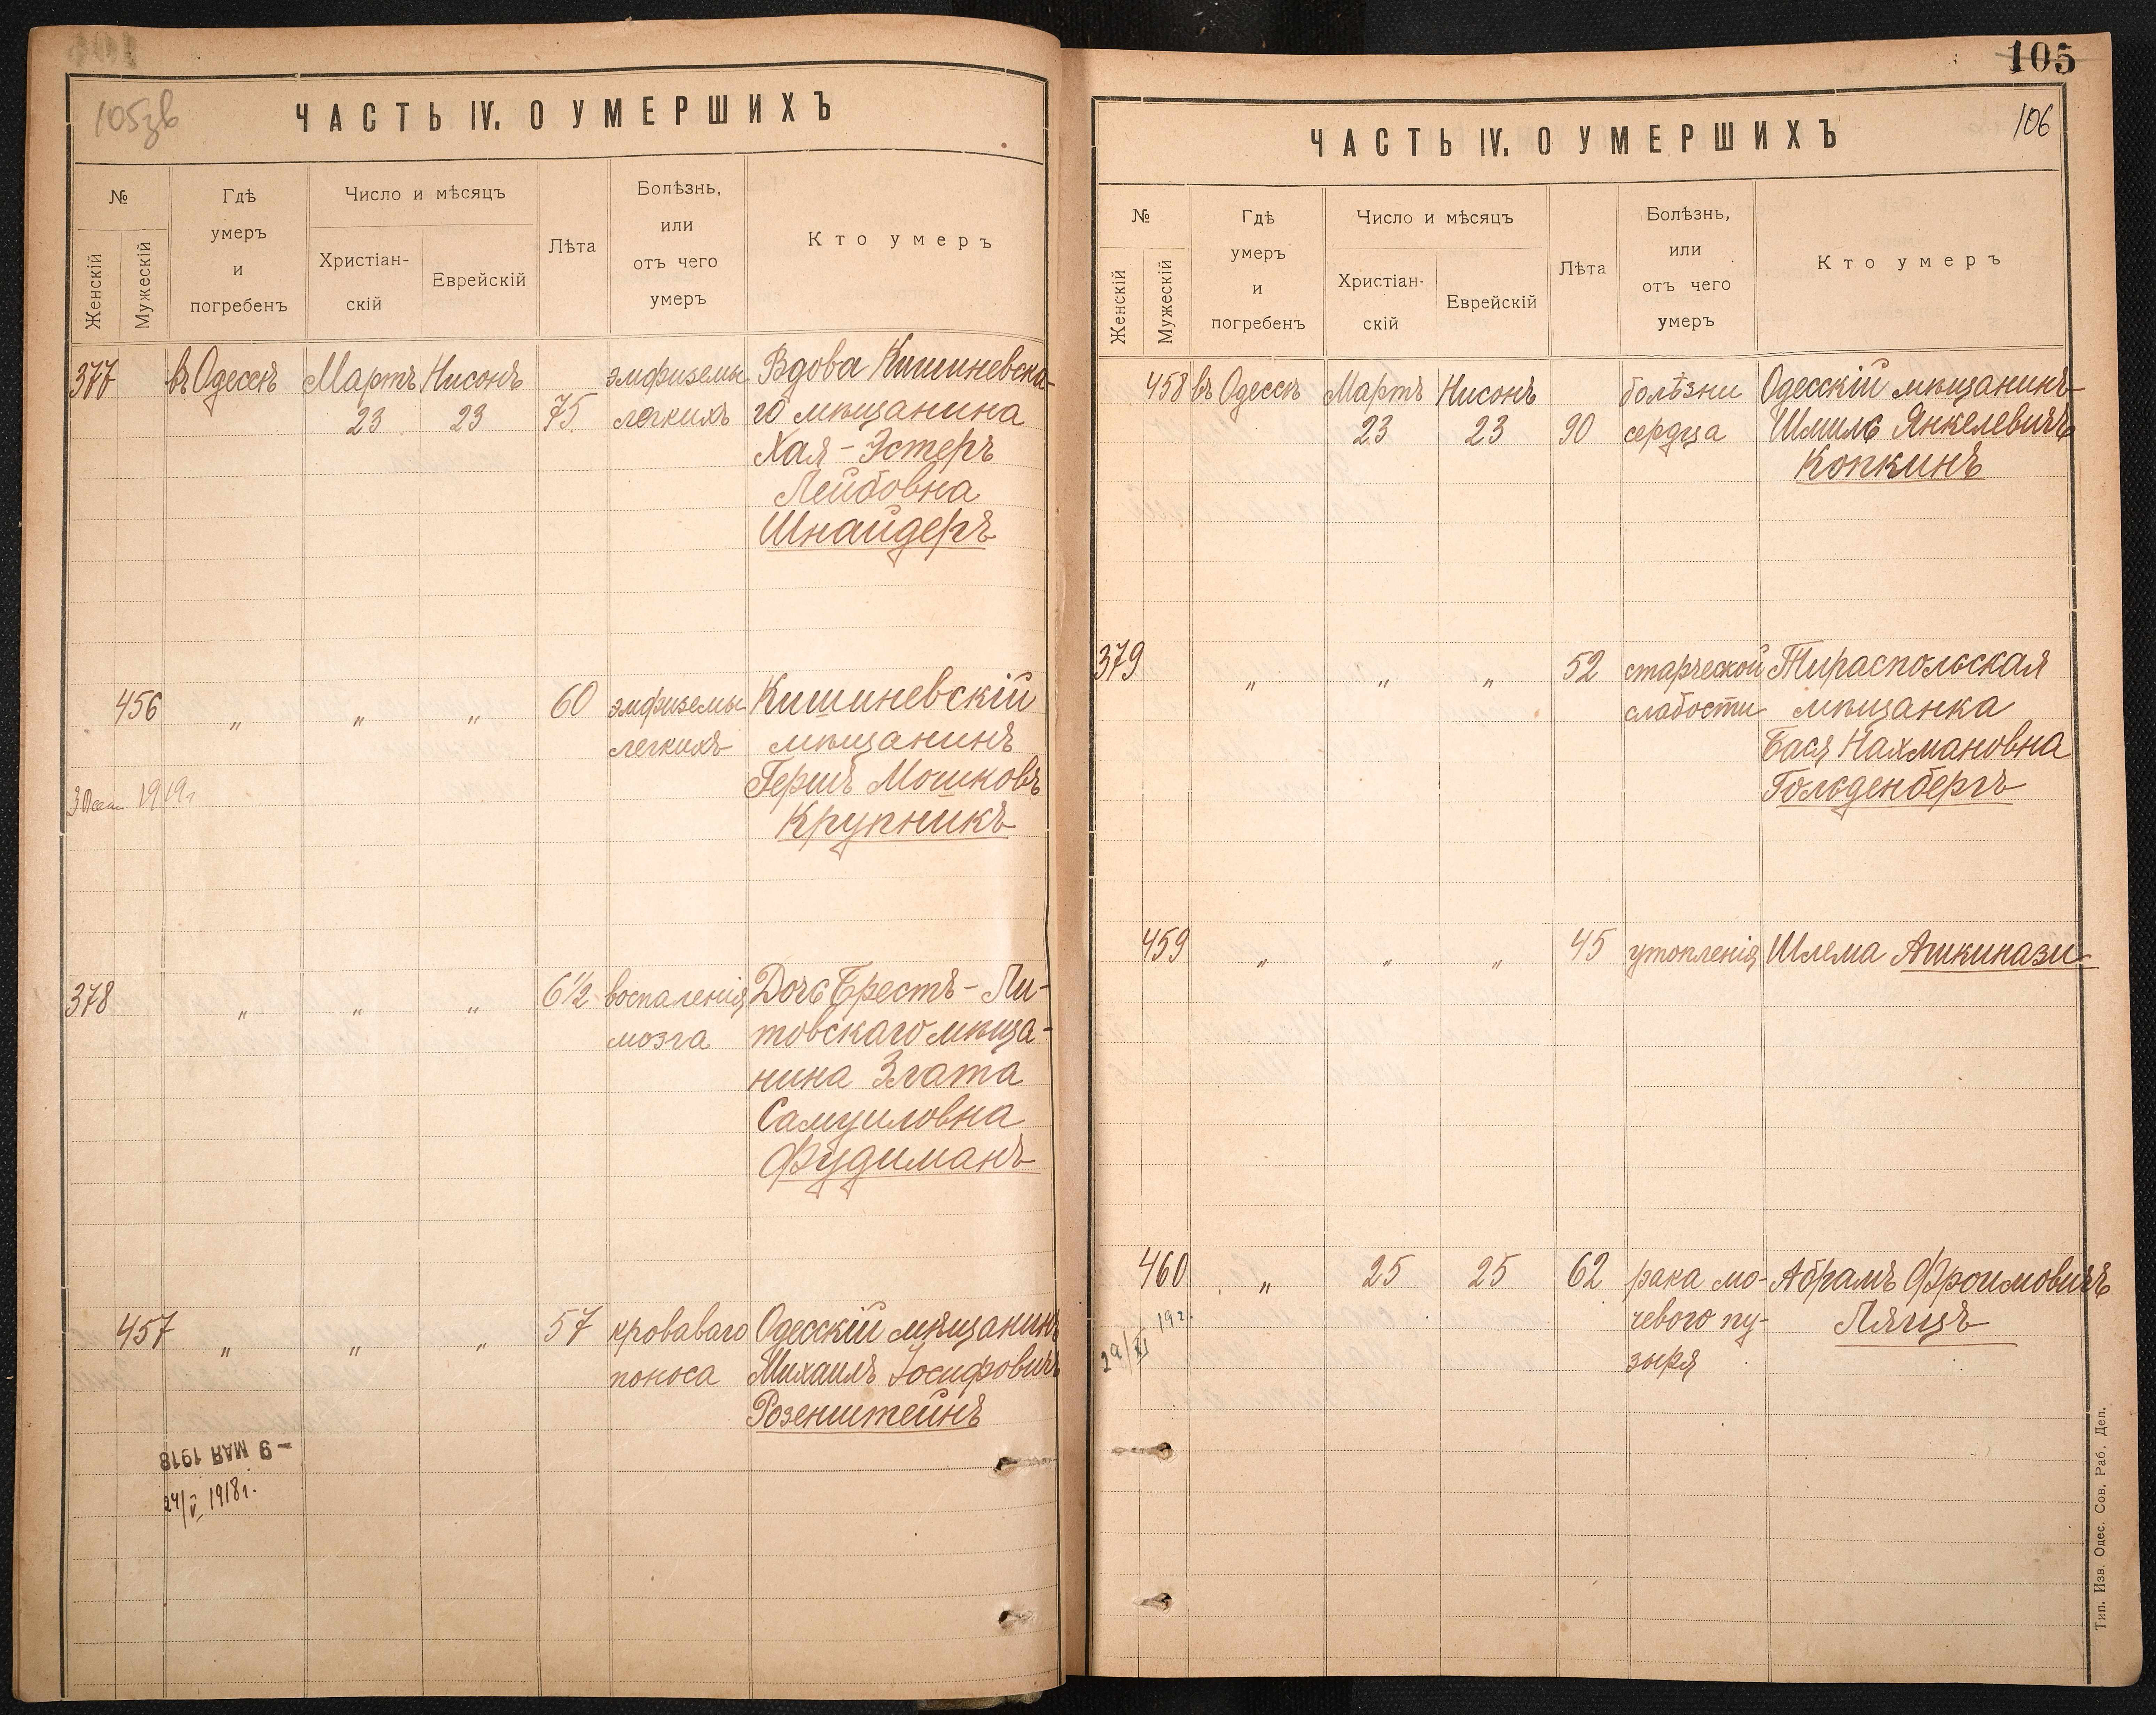 105зв
ЧАСТЬ IV. О УМЕРШИХЪ
№
Женскій
Мужескій
Гдѣ
умеръ
и
погребенъ
Число и мѣсяцъ
Христіан-
скій
Еврейскій
Лѣта
Болѣзнь,
или
отъ чего
умеръ
Кто умеръ
377 въ Одессѣ Мартъ Нисонъ эмфиземы Вдова Кишиневска-
23 23 75 легкихъ го мѣщанина
Хая-Эстеръ
Лейбовна
Шнайдеръ
456 " " " 60 эмфиземы Кишиневскій
легкихъ мѣщанинъ
Гершъ Мошковъ
1919г
Крупникъ
378 " " " 6½ воспаленія Дочь Брестъ-Ли-
мозга товскаго мѣща-
нина Злата
Самуиловна
Фудиманъ
457 " " " 57 кроваваго Одесскій мѣщанинъ
поноса Михаилъ Іосифовичъ
Розенштейнъ
- 9 МАЯ 1918
24/V 1918г.
105
106
ЧАСТЬ IV. О УМЕРШИХЪ
№
Женскій
Мужескій
Гдѣ
умеръ
и
погребенъ
Число и мѣсяцъ
Христіан-
скій
Еврейскій
Лѣта
Болѣзнь,
или
отъ чего
умеръ
Кто умеръ
458 въ Одессѣ Мартъ Нисонъ болѣзни Одесскій мѣщанинъ
23 23 90 сердца Шмиль Янкелевичъ
Копкинъ
379 " " " 52 старческой Тираспольская
слабости мѣщанка
Бася Нахмановна
Гольденбергъ
459 " " " 45 утопленія Шлема Ашкинази
460 " 25 25 62 рака мо- Абрамъ Фроимовичъ
чевого пу- Ляцъ
зыря
29/XI 19г.
Тип. Изв. Одес. Сов. Раб. Деп.